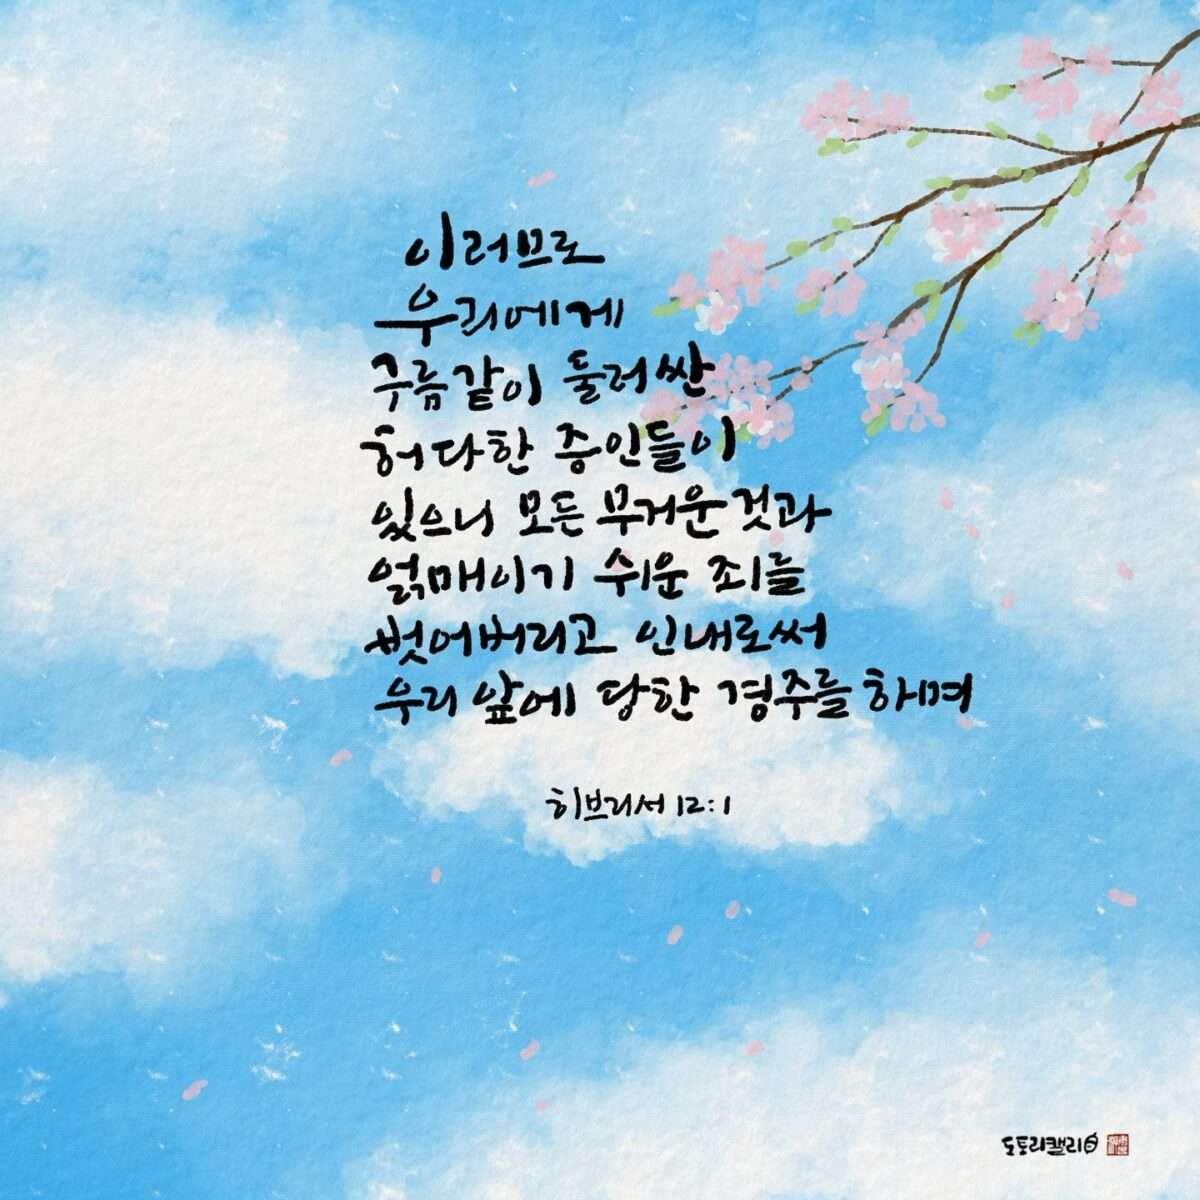 이러므로
우리에게
구름같이 둘러싼
허다한 증인들이
있으니 모든 무거운 것과
얽매이기 쉬운 죄를
벗어버리고 인내로써
우리 앞에 당한 경주를 하며
히브리서 12:1
도토리캘리